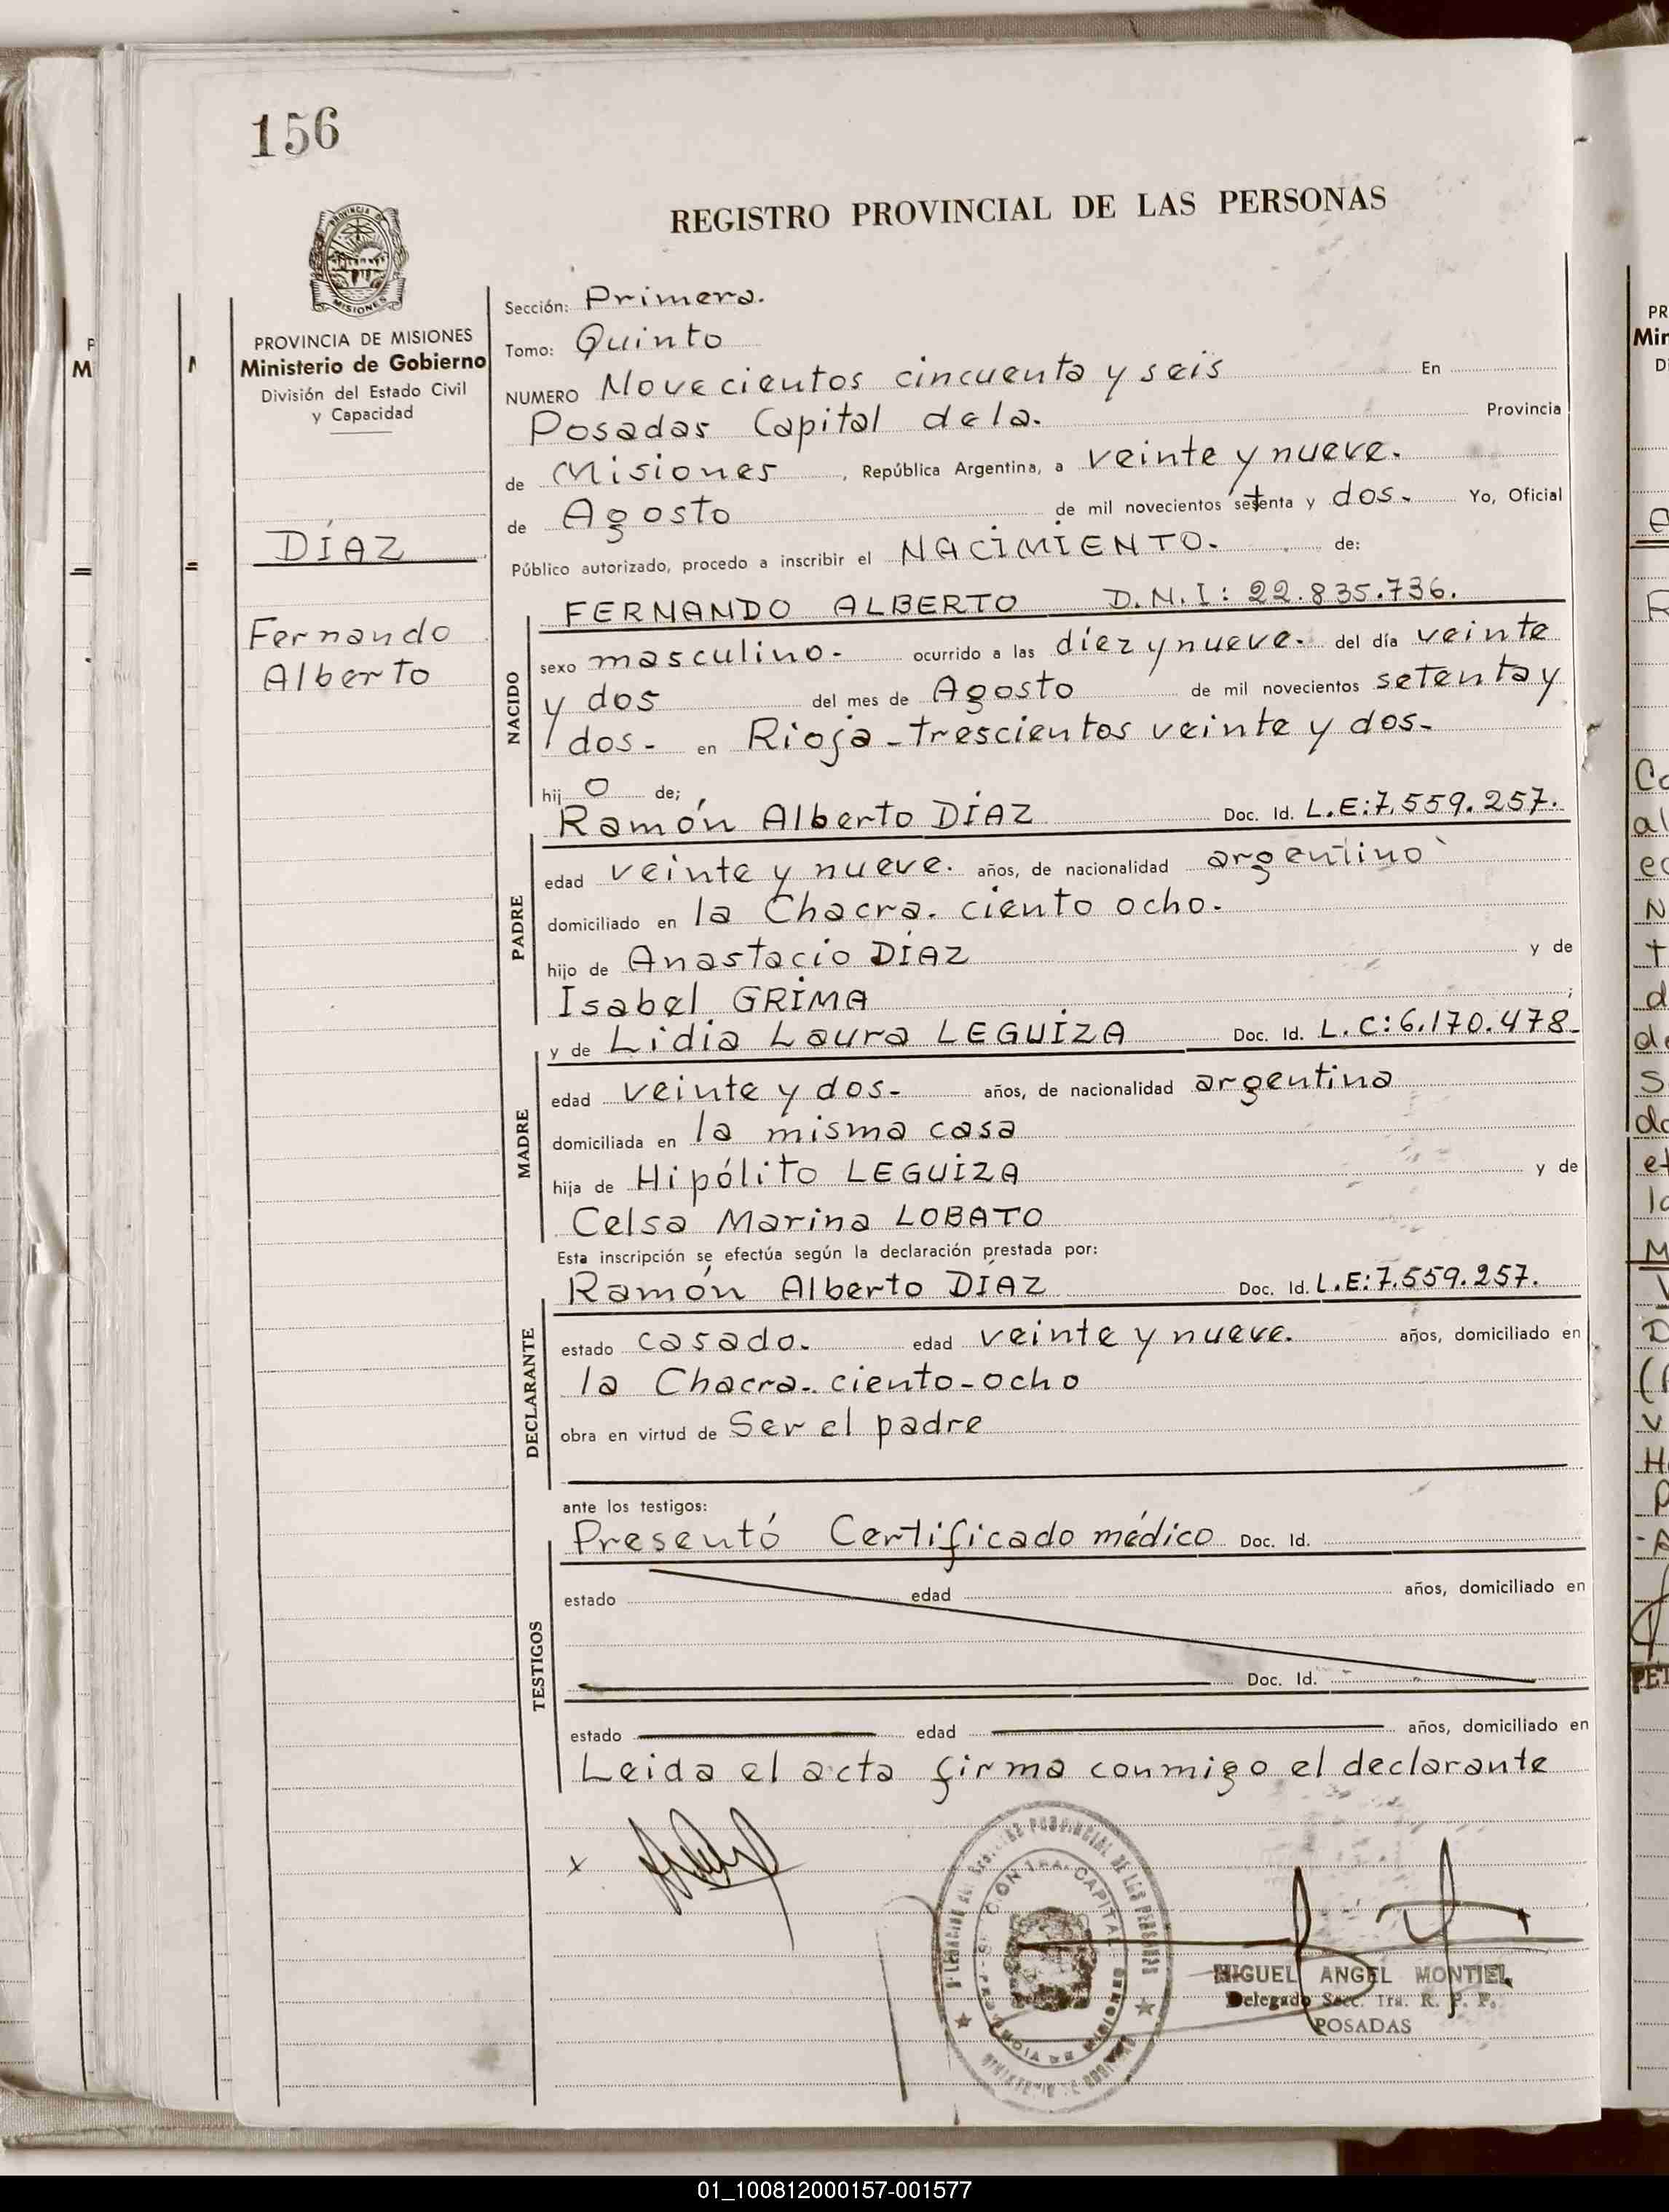 156
REGISTRO PROVINCIAL DE LAS PERSONAS
PROVINCIA DE MISIONES
Ministerio de Gobierno
División del Estado Civil
y Capacidad
DÍAZ
Fernando
Alberto
Sección: Primera.
Tomo: Quinto
NUMERO Novecientos cincuenta y seis En
Posadas Capital de la. Provincia
de Misiones, República Argentina, a veinte y nueve.
de Agosto de mil novecientos setenta y dos. Yo, Oficial
Público autorizado, procedo a inscribir el NACIMIENTO. de:
NACIDO
FERNANDO ALBERTO D.N.I: 22.835.736.
sexo masculino- ocurrido a las diez y nueve- del día veinte
y dos del mes de Agosto de mil novecientos setenta y
dos- en Rioja-trescientos veinte y dos-
hij o de;
PADRE
Ramón Alberto DÍAZ Doc. Id. L.E:7.559.257.
edad veinte y nueve. años, de nacionalidad argentino
domiciliado en la Chacra. ciento ocho.
hijo de Anastacio DÍAZ y de
Isabel GRIMA ;
MADRE
y de Lidia Laura LEGUIZA Doc. Id. L.C:6.170.478-
edad veinte y dos- años, de nacionalidad argentina
domiciliada en la misma casa
hija de Hipólito LEGUIZA y de
Celsa Marina LOBATO
Esta inscripción se efectúa según la declaración prestada por:
DECLARANTE
Ramón Alberto DÍAZ Doc. Id. L.E:7.559.257.
estado casado. edad veinte y nueve. años, domiciliado en
la Chacra-ciento-ocho
obra en virtud de Ser el padre
ante los testigos:
TESTIGOS
Presentó Certificado médico Doc. Id.
estado edad años, domiciliado en
Doc. Id.
estado edad años, domiciliado en
Leida el acta firma conmigo el declarante
x
PROVINCIAL DE LAS PERSONAS
CAPITAL
MIGUEL ANGEL MONTIEL
Delegado Secc. 1ra. R. P. P.
POSADAS
01_100812000157-001577